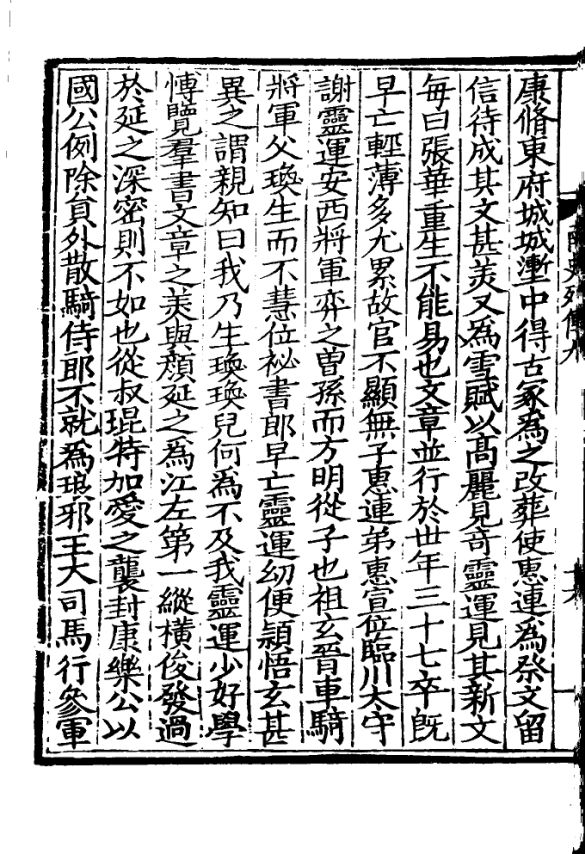 康脩東府城城壍中得古冢為之改葬使惠連為祭文留
信待成其文甚美又為雪賦以高麗見奇靈運見其新文
每曰張華重生不能易也文章並行於世年三十七卒旣
早亡輕薄多尤累故官不顯無子惠連弟惠宣位臨川太守
謝靈運安西將軍弈之曾孫而方明從子也祖玄晉車騎
將軍父瑍生而不慧位祕書郎早亡靈運幼便穎悟玄甚
異之謂親知曰我乃生瑍瑍兒何為不及我靈運少好學
博覽羣書文章之美與顏延之為江左第一縱橫俊發過
於延之深密則不如也從叔琨特加愛之襲封康樂公以
國公例除員外散騎侍郎不就為琅邪王大司馬行參軍